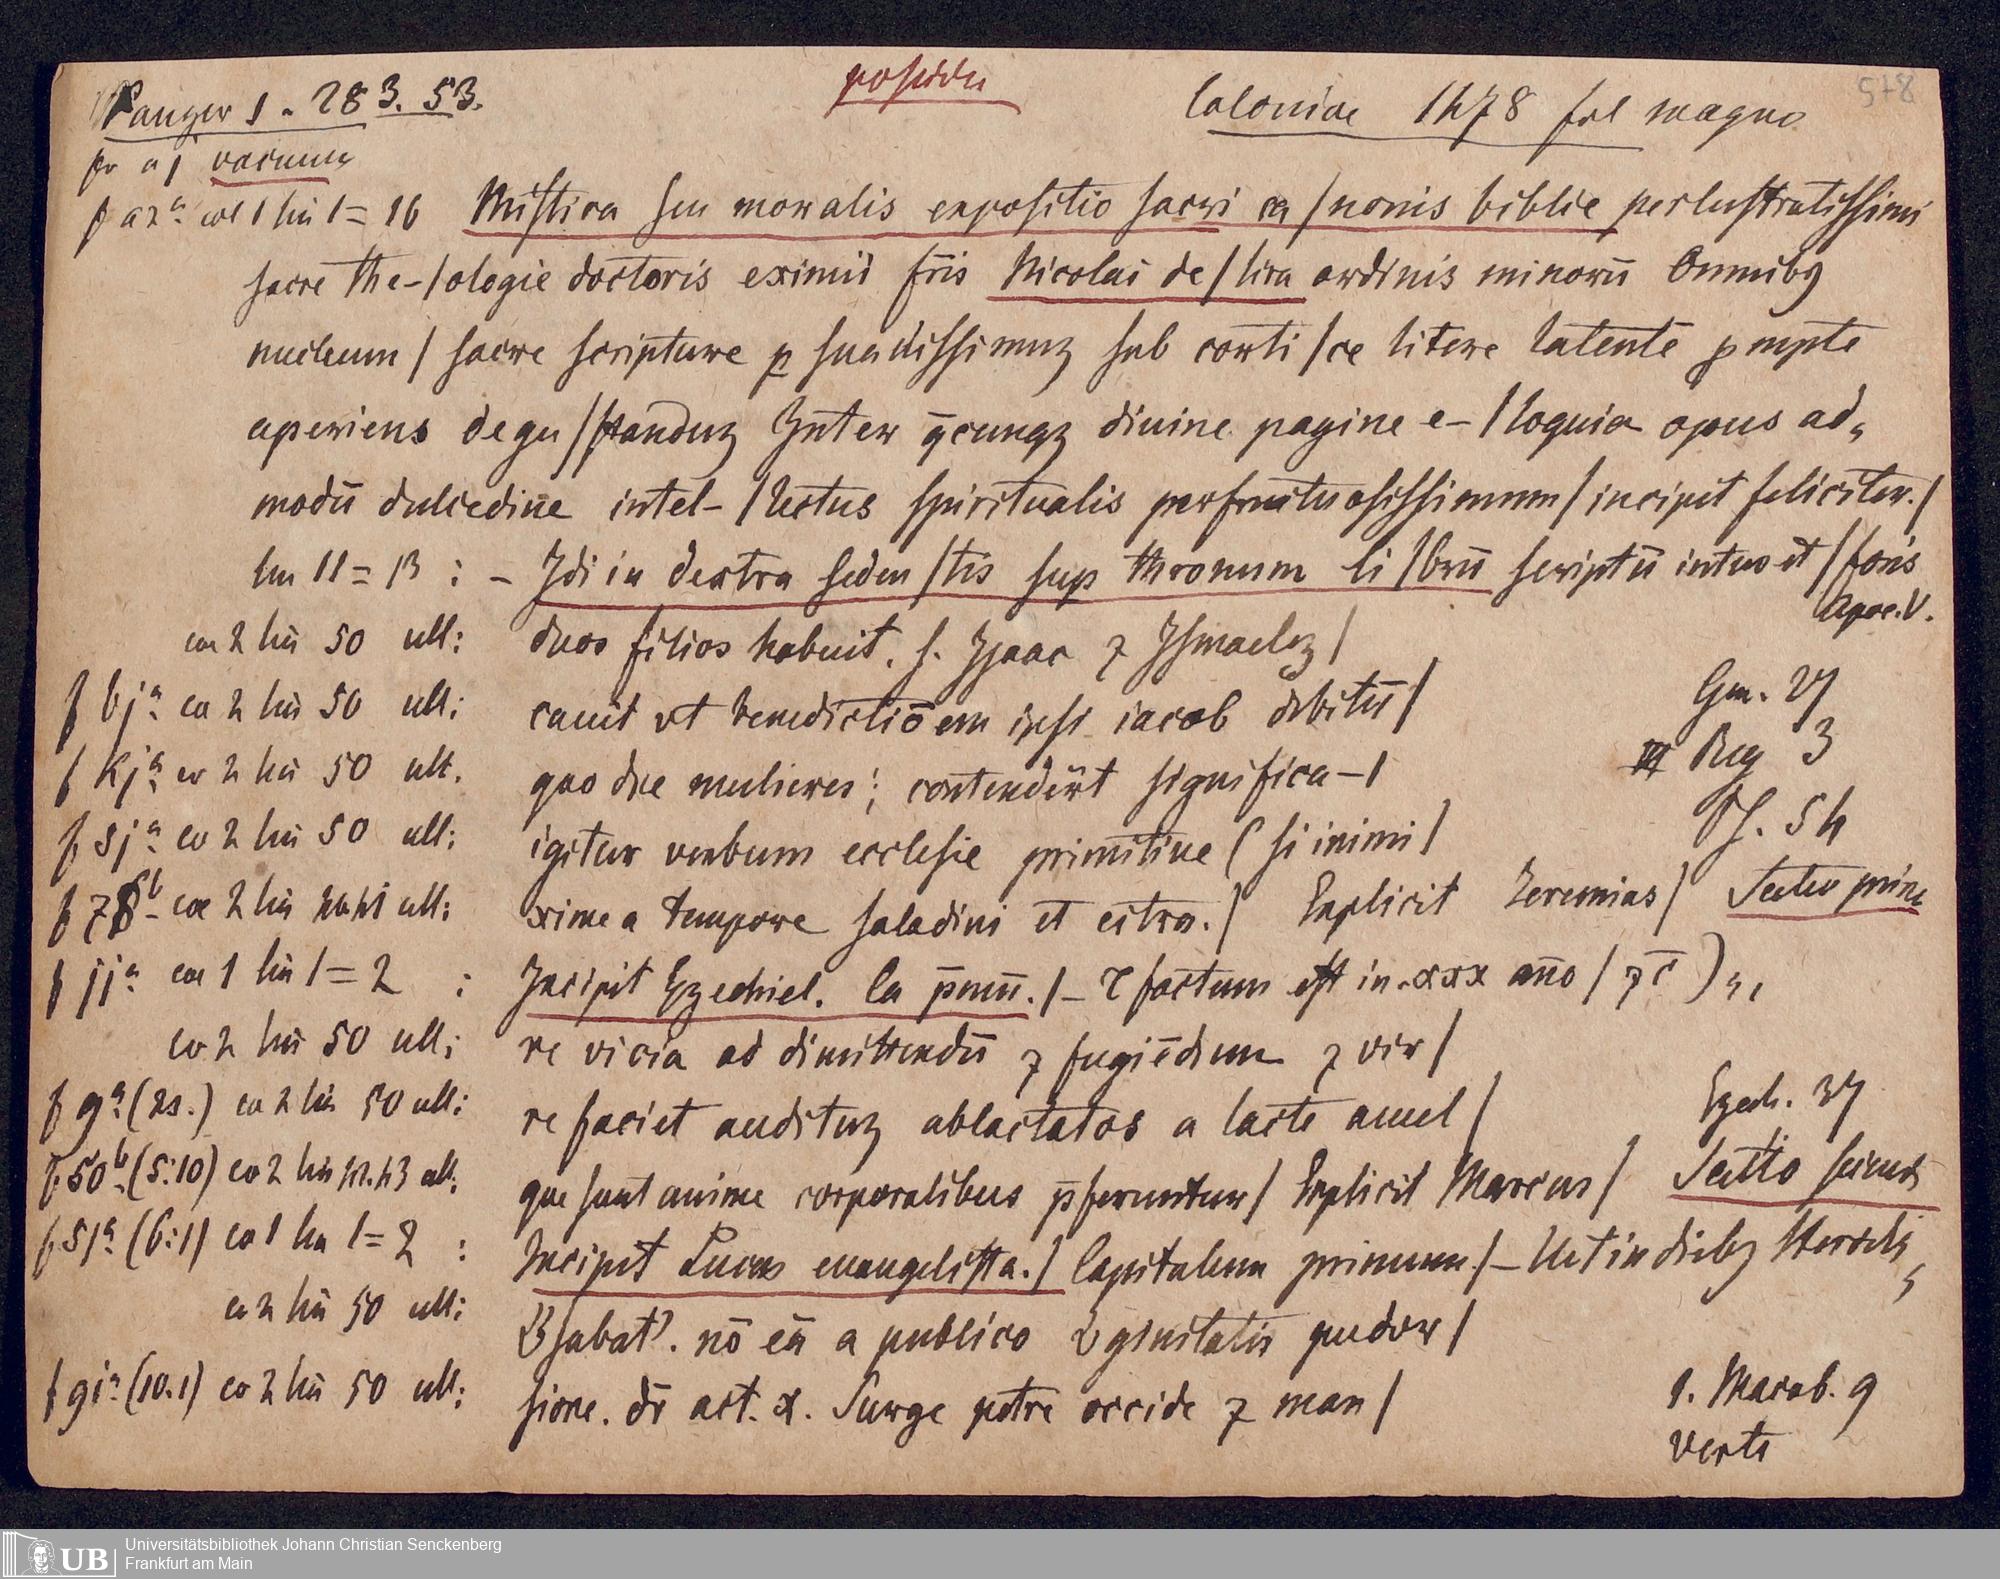 Panzer 1. 283. 53.
possideo
Coloniae 1478 fol magno
578
fo a j vacuum
f a2a col 1 lin 1 = 16 Mistica seu moralis expositio sacri ca/nonis biblie perlustratissimi
sacre the-/ologie doctoris eximii fris Nicolai de/lira ordinis minorū Omnibꝫ
nucleum / sacre scripture p suauissimuz sub corti/ce litere latentē prompte
aperiens degu/standuz Inter qcunqꝫ diuine pagine e-/loquia opus ad„
modū dulcedine intel-/lectus spiritualis perfructuosissimum/ incipit feliciter./
lin 11 = 13 : – Idi in dextra seden/tis sup thronum li/brū scriptū intus et / foris
Apoc. V.
co 2 lin 50 ult: duos filios habuit. s. Isaac ⁊ Ismaelꝫ/
f bja co 2 lin 50 ult: cauit vt benedictiōem ipsi iacob debitū/ Gen. 27
f kja co 2 lin 50 ult. quo due mulieres; contendērt significa-/ III Reg 3
f sja co 2 lin 50 ult: igitur verbum ecclesie primitiue (si inimi/ Ps. 54
f 78b co 2 lin 40.41 ult: xime a tempore saladini et citra./ Explicit Jeremias/ Sectio prima
f jja co 1 lin 1 = 2 : Incipit Ezechiel. Ca pmū. /– Et factum est in. xxx año / ⁊c̄ )„,
co 2 lin 50 ult: re vicia ad dimittendū ⁊ fugiēdum ⁊ vir/
f 9a (2s.) co 2 lin 50 ult: re faciet audituꝫ ablactatos a lacte auel/ Ezech. 37
f 50b (5:10) co 2 lin 42.43 ult: que sunt anime corporalibus pferuntur/ Explicit Marcus/ Sectio secunda
f 51a (6:1) co 1 lin 1 = 2 : Incipit Lucas euangelista./ Capitulum primum./– Uet in diebꝫ Herodis,
co 2 lin 50 ult: sabat'. nō eñ a publico ginitatis pudor/
f 91a (10.1) co 2 lin 50 ult: sione. dr̄ act. x. Surge petre occide ⁊ man/ 1. Macab. 9
verte
UB Universitätsbibliothek Johann Christian Senckenberg
Frankfurt am Main